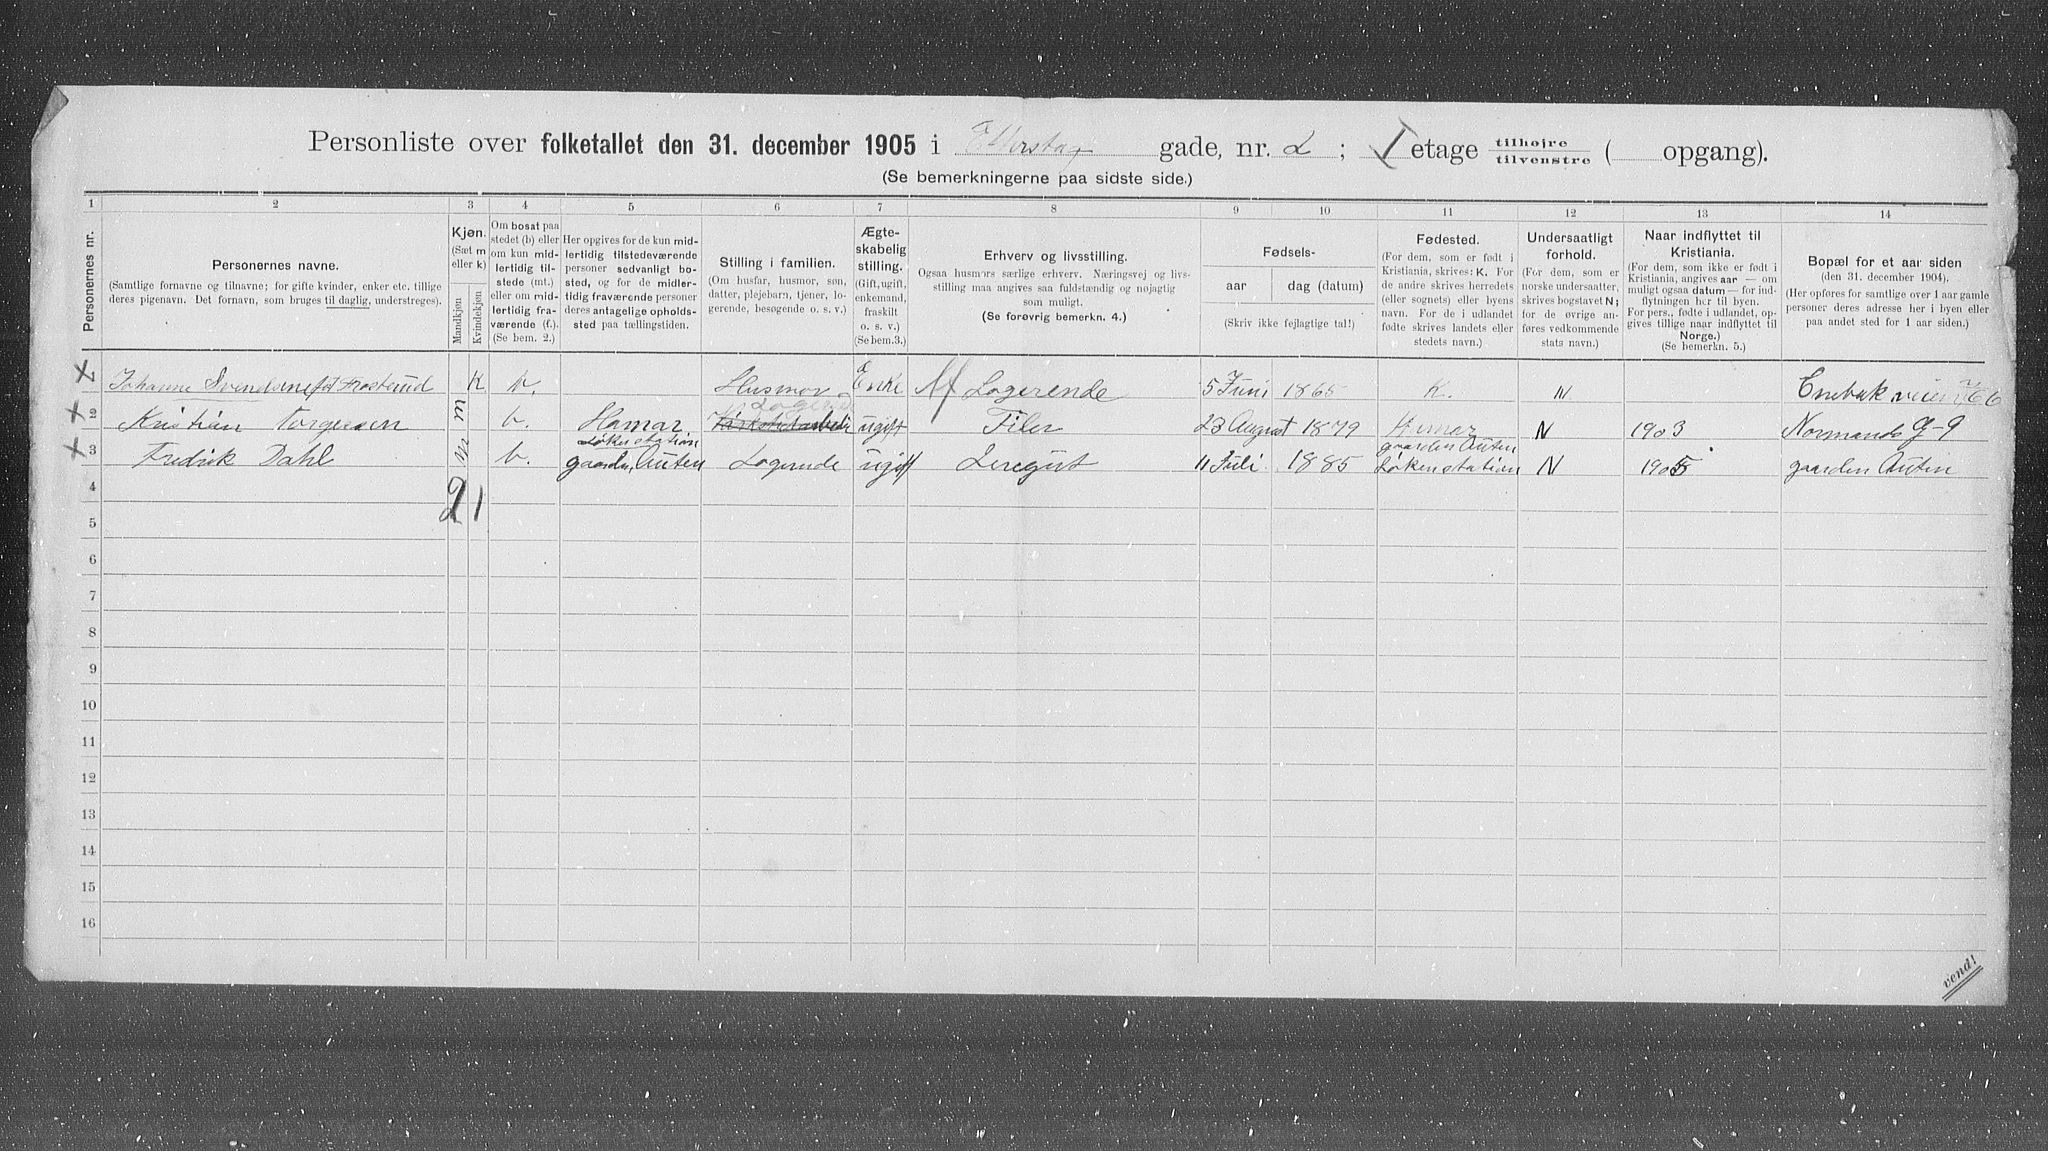 Personliste over folketallet den 31. december 1905 i Etterstad gade, nr. 2 ; I etage tilhøjre tilvenstre ( opgang).
(Se bemerkningerne paa sidste side.)
1 2 3 4 5 6 7 8 9 10 11 12 13 14
Personernes nr.
Personernes navne.
(Samtlige fornavne og tilnavne; for gifte kvinder, enker etc. tillige
deres pigenavn. Det fornavn, som bruges til daglig, understreges).
Kjøn.
(Sæt m
eller k)
Mandkjøn
Kvindekjøn
Om bosat paa
stedet (b) eller
om kun mid-
lertidig til-
stede (mt.)
eller om mid-
lertidig fra-
værende (f.).
(Se bem. 2.)
Her opgives for de kun mid-
lertidig tilstedeværende
personer sedvanligt bo-
sted, og for de midler-
tidig fraværende personer
deres antagelige opholds-
sted paa tællingstiden.
Stilling i familien.
(Om husfar, husmor, søn,
datter, plejebarn, tjener, lo-
gerende, besøgende o. s. v.)
Ægte-
skabelig
stilling.
(Gift, ugift,
enkemand,
fraskilt
o. s. v.)
(Se bem.3.)
Erhverv og livsstilling.
Ogsaa husmors særlige erhverv. Næringsvej og livs-
stilling maa angives saa fuldstændig og nøjagtig
som muligt.
(Se forøvrig bemerkn. 4.)
Fødsels-
aar dag (datum)
(Skriv ikke fejlagtige tal!)
Fødested.
(For dem, som er født i
Kristiania, skrives: K. For
de andre skrives herredets
(eller sognets) eller byens
navn. For de i udlandet
fødte skrives landets eller
stedets navn.)
Undersaatligt
forhold.
(For dem, som er
norske undersaatter,
skrives bogstavet N;
for de øvrige an-
føres vedkommende
stats navn.)
Naar indflyttet til
Kristiania.
(For dem, som ikke er født i
Kristiania, angives aar — om
muligt ogsaa datum — for ind-
flytningen her til byen.
For pers., fødte i udlandet, op-
gives tillige naar indflyttet til
Norge.)
(Se bemerkn. 5.)
Bopæl for et aar siden
(den 31. december 1904).
(Her opføres for samtlige over 1 aar gamle
personer deres adresse her i byen eller
paa andet sted for 1 aar siden.)
1 Johanne Svendsen født Frosterud K b. Husmor Enke Logerende 5 Juni 1865 K. N. Enebakveien 66
2 Kristian Torgersen m b. Hamar Logerende ugift Filer 23 August 1879 Hamar N 1903 Normands G-9
3 Fredrik Dahl m b. Løken station gaarden Auten Logerende ugift 11 Juli 1885 gaarden Auten Løkenstation N 1905 gaarden Autin
4 2 1
5
6
7
8
9
10
11
12
13
14
15
16
vend!